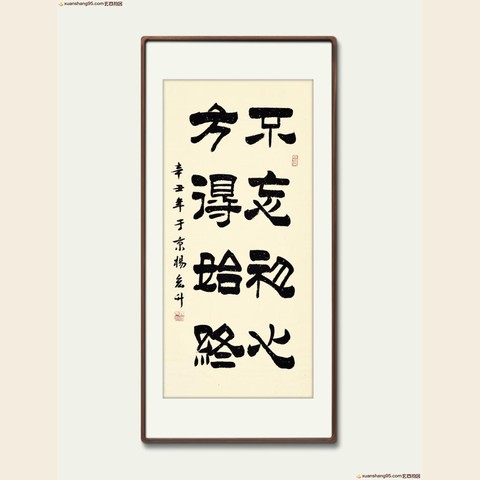 xuanshang95.com
不忘初心
方得始終
辛丑年于京楊升
xuanshang95.com